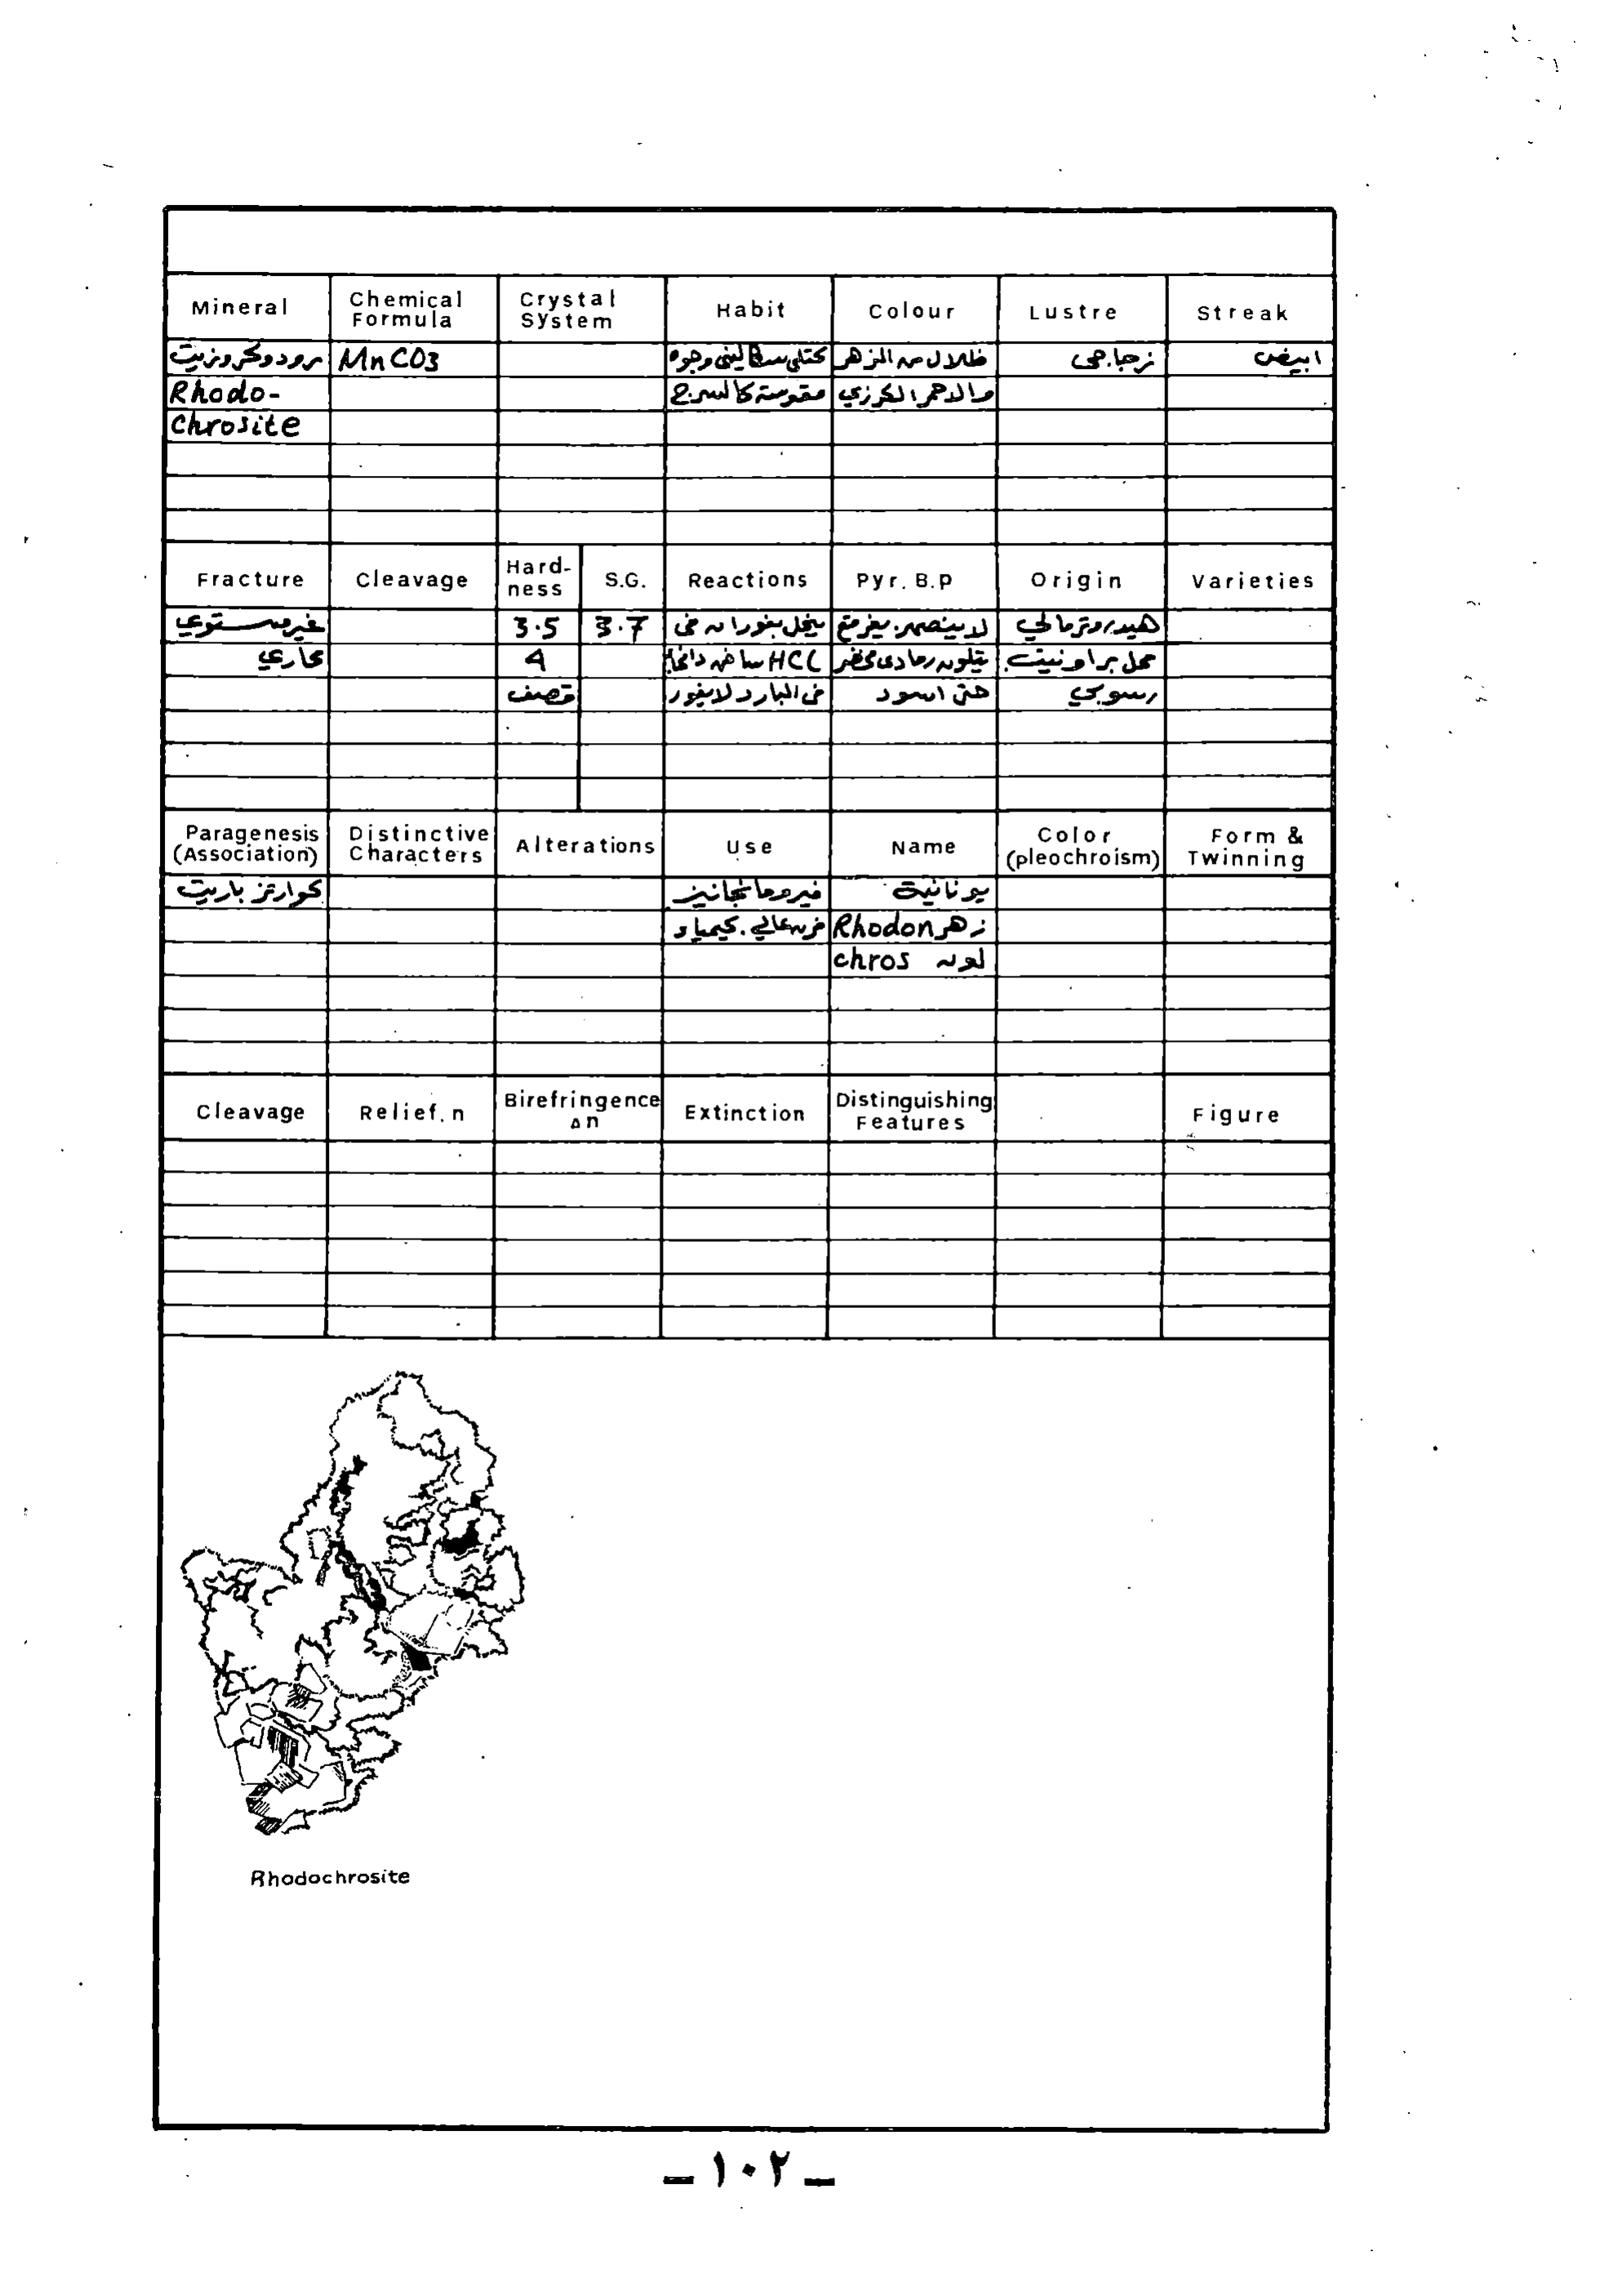 Mineral Chemical Formula Crystal System Habit Colour Lustre Streak
رودوكروزيت MnCO3 كتلي وجوه ظلال من الزهر زجاجي ابيض
Rhodo- مقوسة كالسرج والاحمر الكرزي
Chrosite
Fracture Cleavage Hard-ness S.G. Reactions Pyr. B.p Origin Varieties
غير مستوي 3.5 3.7 ينحل بفوران في لا ينصهر. يفرقع هيدروترمالي
محاري 4 HCl ساخن يتلون رمادي مخضر محل براونيت
قصف في البارد لا يفور حتى اسود رسوبي
Paragenesis (Association) Distinctive Characters Alterations Use Name Color (pleochroism) Form & Twinning
كوارتز باريت فيرومانجانيز يونانية
فرن عالي. كيمياء Rhodon زهر
chros لون
Cleavage Relief.n Birefringence Δn Extinction Distinguishing Features Figure
Rhodochrosite
– ١٠٢ –